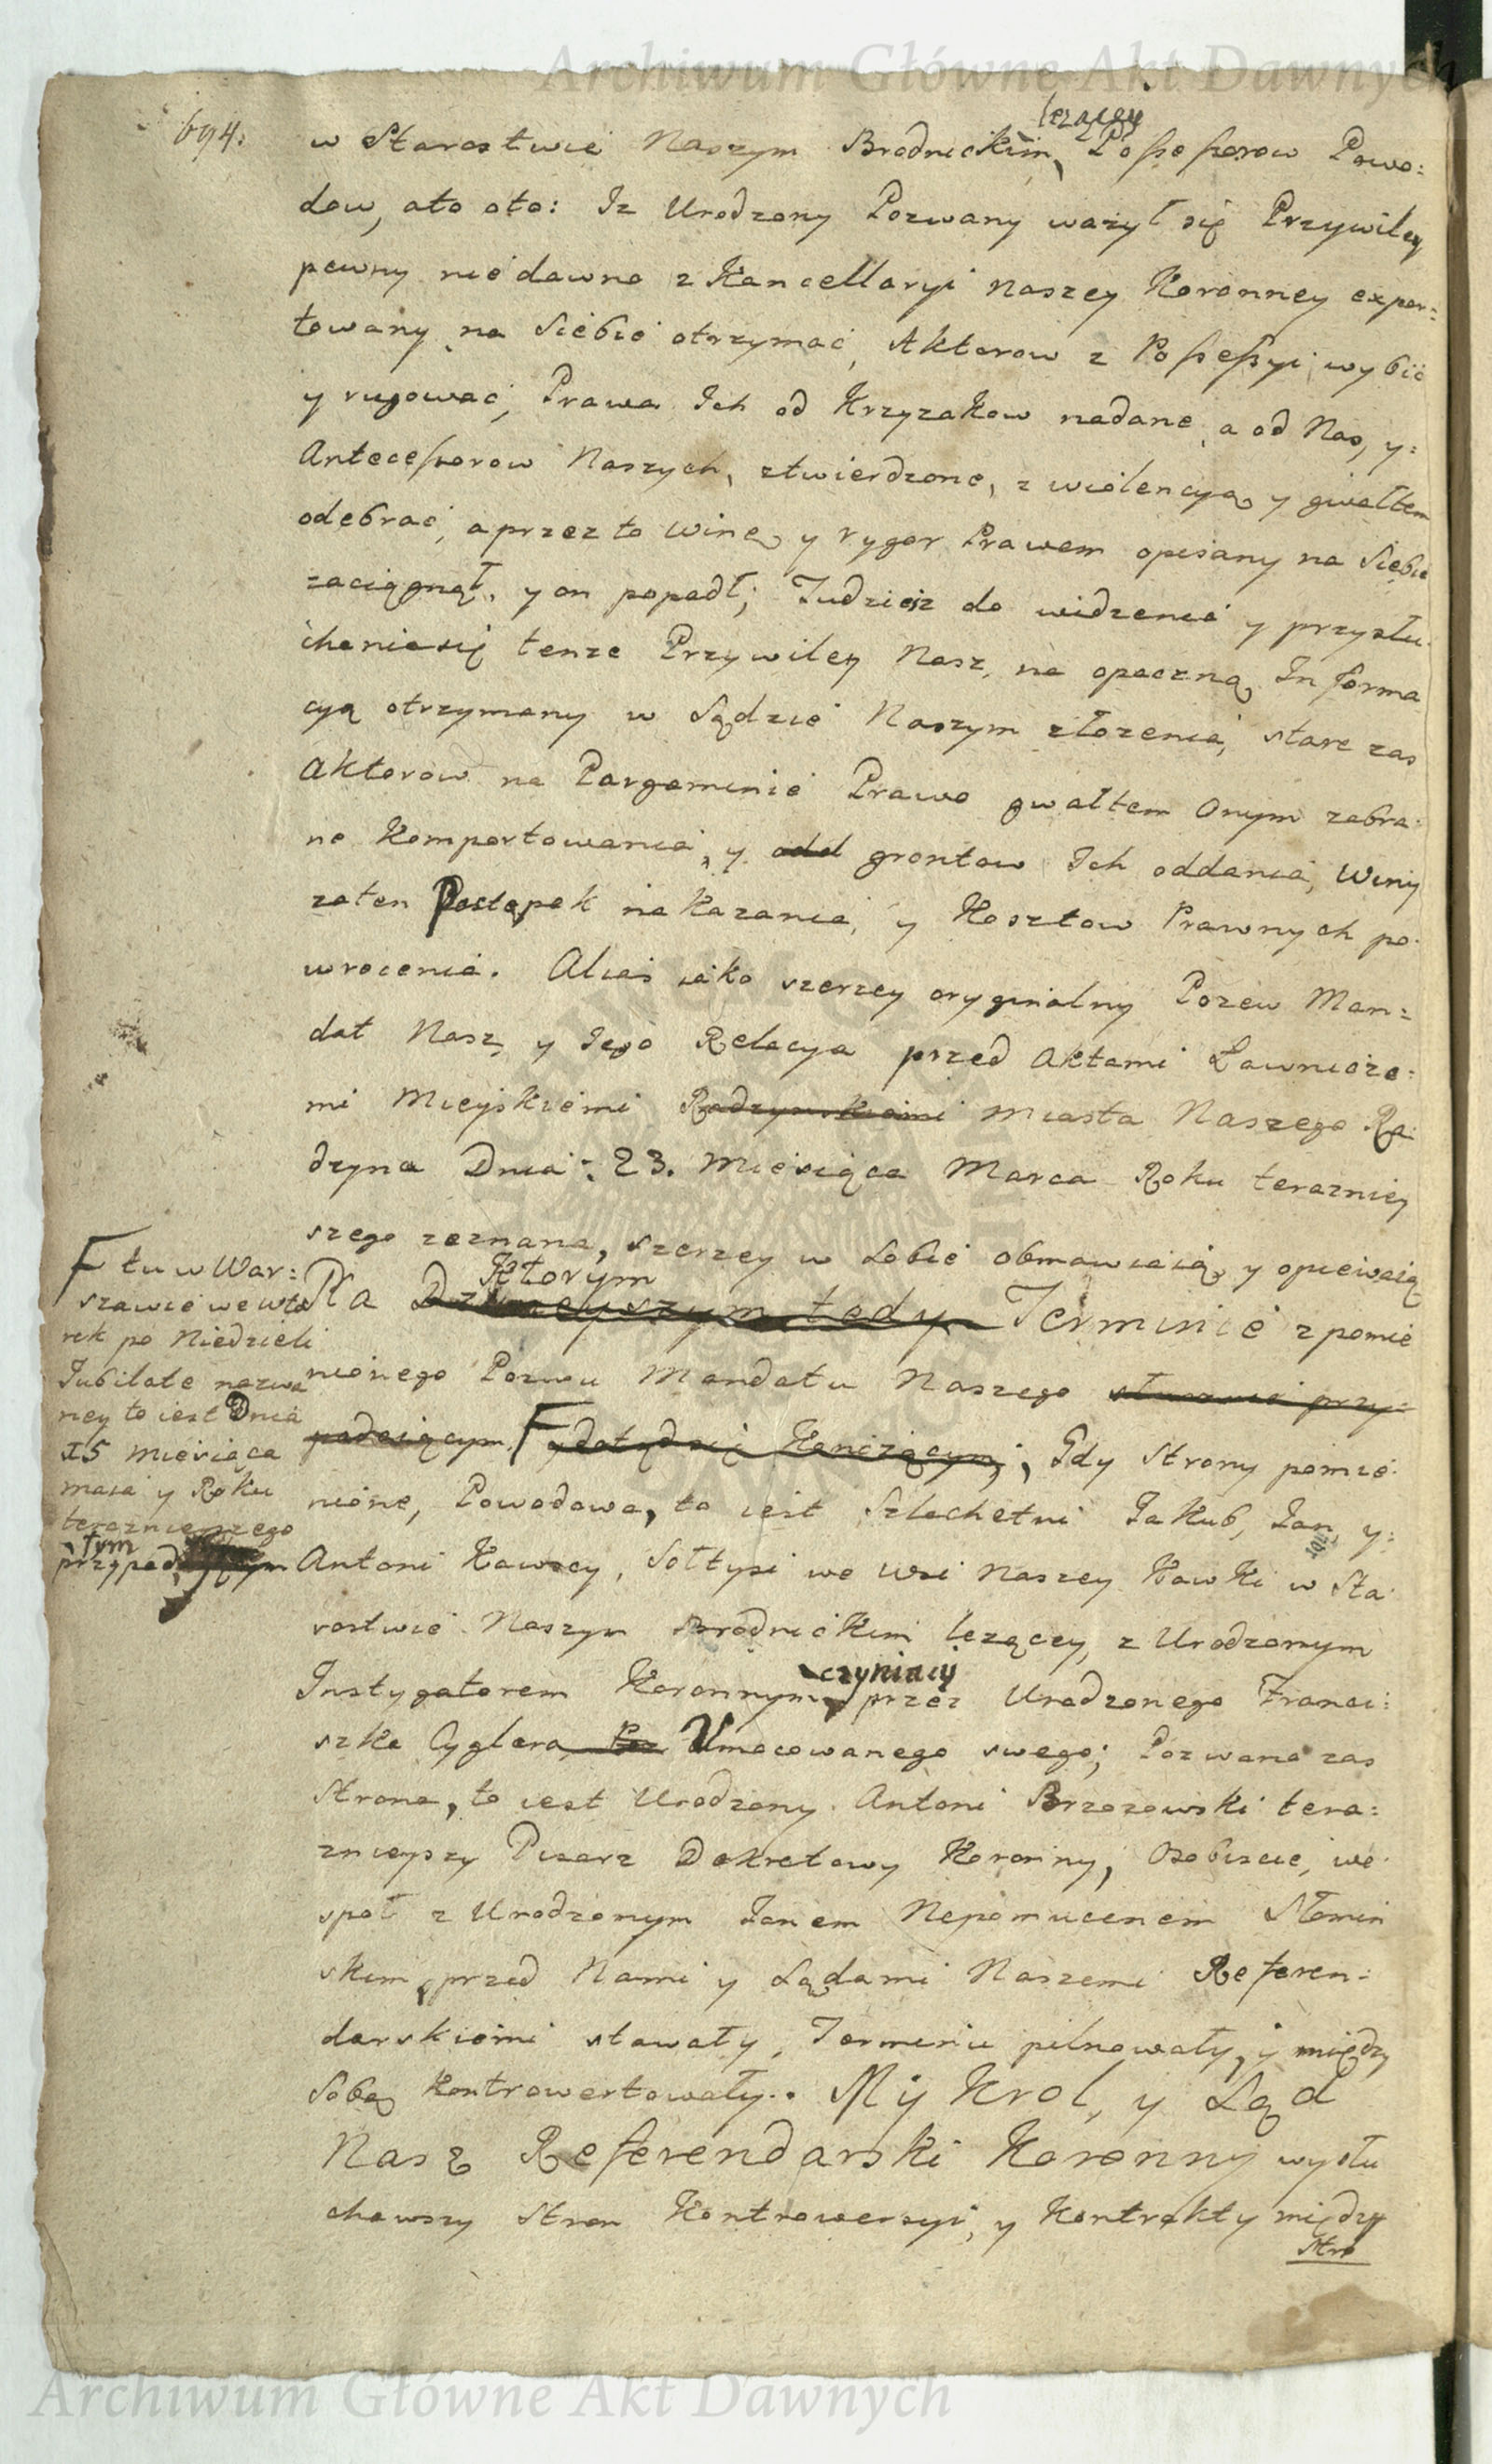 Archiwum Główne Akt Dawnych
694.
leżącey
w Starostwie Naszym Brodnickim, Possessorow Powo=
dow, ato oto: Iz Urodzony Pozwany ważył się Przywiley
pewny nie dawno z Kancellaryi naszey Koronney expor=
towany na siebie otrzymać, Aktorow z Possessyi wybić
y rugować, Prawa Ich od Krzyzakow nadane, a od Nas, y=
Antecessorow Naszych, ztwierdzone, z wiolencyą y gwałtem
odebrać, aprzez to winę y rygor Prawem opisany na siebie
zaciągnął, y on popadł; Tudziesz do widzenia y przysłu=
chania się tenze Przywiley Nasz, na opaczną Informa
cyą otrzymany w Sądzie Naszym złozenia, stare zas
Aktorow na Pargaminie Prawo gwałtem Onym zabra=
ne Komportowania, y odd grontow Ich oddania, Winy
zaten Postępek nakazania, y Kosztow Prawnych po=
wrocenia. Alias iako szerzey oryginalny Pozew Man=
dat Nasz, y Jego Relacya przed Aktami Ławnicze=
mi Mieyskiemi Radzynskiemi Miasta Naszego Ra=
dzyna Dnia: 23. Miesiąca Marca Roku teraznier
szego zeznana, szerzey w sobie obmawiaią y opiewaią
Ktorym
Na Dzisieyszym tedy Terminie z pomie
nionego Pozwu Mandatu Naszego słusznie przy=
padaiącym, F ydotądsię Kończącym; Gdy Strony pomie=
nione, Powodowa, to iest Szlachetni Jakub, Jan, y=
Antoni Kawscy, Sołtysi we Wsi Naszey Kawki w Sta=
rostwie Naszym Brodnickim lezączy, z Urodzonym
czyniący
Instygatorem Koronnym przez Urodzonego Franci=
szka Cyglera Umocowanego swego; Pozwana zas
Strona, to iest Urodzony Antoni Brzozowski tera=
znieyszy Pisarz Dekretowy Koronny, Osobiscie, we=
społ z Urodzonym Janem Nepomucenem Słomin
skim, przed Nami y Sądami Naszemi Referen=
darskiemi stawały, Terminu pilnowały, y między
Sobą Kontrowertowały. My Krol, y Sąd
Nasz Referendarski Koronny wysłu
chawszy Stron Kontrowersyi, y Kontrakty między
Stro
F tu w War=
szawie we wto
rek po Niedzieli
Jubilate nazwa
ney to iest Dnia
15 Miesiąca
Maia y Roku
teraznieyszego
tym
przypad
Archiwum Główne Akt Dawnych